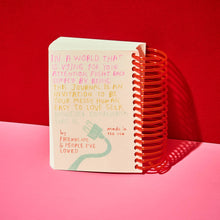 IN A WORLD THAT
IS VYING FOR YOUR
ATTENTION, FIGHT BACK
SIMPLY BY BEING.
THIS JOURNAL IS AN
INVITATION TO BE
YOUR MESSY, HUMAN,
EASY TO LOVE SELF.
by
& PEOPLE I'VE
LOVED
made in
the USA